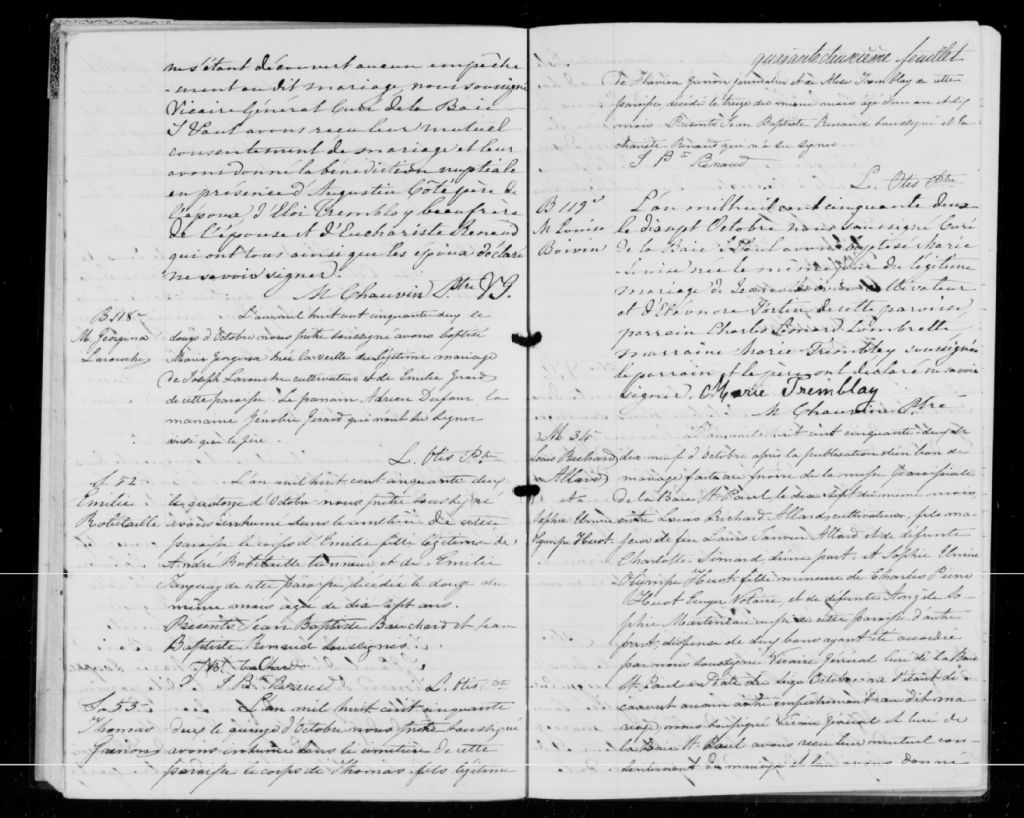 ne s'étant découvert aucun empêche
-ment au dit mariage, nous soussigné
Vicaire Général Curé de la Baie
S. Paul avons reçu leur mutuel
consentement de mariage et leur
avons donné la bénédiction nuptiale
en présence d'Augustin Côté père de
l'époux, d'Eloi Tremblay beaufrère
de l'épouse et d'Euchariste Renaud
qui ont tous ainsi que les époux déclaré
ne savoir signer.
M Chauvin Ptre VG.
B 118e
M. Georgina
Larouche
L'an mil huit cent cinquante deux le
douze d'Octobre nous prêtre soussigné avons baptisé
Marie Georgina née la veille du légitime mariage
de Joseph Larouche cultivateur et de Emilie Girard
de cette paroisse. Le parrain Adrien Dufour la
marraine Zénobie Girard qui n'ont su signer
ainsi que le père.
L. Otis Ptre
S. 52
Emilie
Robitaille
L'an mil huit cent cinquante deux
le quatorze d'Octobre nous prêtre soussigné
avons inhumé dans le cimetière de cette
paroisse le corps d'Emilie fille légitime de
André Robitaille tanneur et de Emilie
Tanguay de cette paroisse, décédée le douze du
même mois agée de dix sept ans.
Présents Jean Baptiste Bouchard et Jean
Baptiste Renaud soussignés.
J B Renaud
L. Otis ptr
S. 53
Thomas
Gagnon
L'an mil huit cent cinquante
deux le quinze d'Octobre nous prêtre soussigné
avons inhumé dans le cimetière de cette
paroisse le corps de Thomas, fils légitime
quarante deuxième feuillet
de journalier et de Tremblay de cette
paroisse décédé le treize du même mois agé d'un an et
mois. Présents Jean Baptiste Renaud soussigné et Eu-
chariste Renaud qui n'a su signer
J Bte Renaud
L. Otis Ptre
B 119e
M Louise
Boivin
L'an mil huit cent cinquante deux
le dix sept Octobre nous soussigné Curé
de la Baie S. Paul avons baptisé Marie
Louise née le même jour du légitime
mariage de Boivin cultivateur
et d'Eléonore Fortin de cette paroisse,
parrain Charles Simard
marraine Marie Tremblay soussignée
le parrain et le père ont déclaré ne savoir
signer. Marie Tremblay
M Chauvin Ptre
M 34
Louis Richard
Allard
et
Sophie Elmire
Olympe Huot
L'an mil huit cent cinquante deux le
dix neuf d'Octobre après la publication d'un ban de
mariage faite au prône de la messe paroissiale
de la Baie St Paul le dix sept du même mois
entre Louis Richard Allard, cultivateur, fils ma-
jeur de feu Louis Allard et de défunte
Charlotte Simard d'une part, et Sophie Elmire
Olympe Huot fille mineure de Charles Pierre
Huot Ecuyer Notaire, et de défunte Angèle So-
phie Martineau aussi de cette paroisse d'autre
part, dispense de deux bans ayant été accordée
par nous soussigné Vicaire Général Curé de la Baie
St Paul en date du seize Octobre ne s'étant dé-
couvert aucun autre empêchement au dit ma-
riage, nous soussigné Vicaire Général et Curé de
la Baie St Paul avons reçu leur mutuel con-
sentement de mariage et leur avons donné